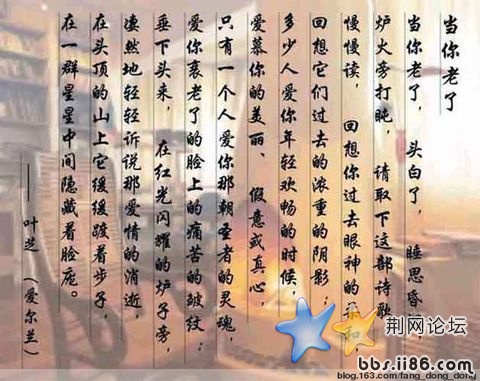 当你老了
当你老了， 头白了， 睡思昏
炉火旁打盹， 请取下这部诗歌
慢慢读， 回想你过去眼神的
回想它们过去的浓重的阴影；
多少人爱你年轻欢畅的时候，
爱慕你的美丽、 假意或真心，
只有一个人爱你那朝圣者的灵魂，
爱你衰老了的脸上的痛苦的皱纹；
垂下头来， 在红光闪耀的炉子旁，
凄然地轻轻诉说那爱情的消逝，
在头顶的山上它缓缓踱着步子，
在一群星星中间隐藏着脸庞。
——叶芝 （爱尔兰）
荆网论坛
bbs.ii86.com
blog.163.com/fang_dong_dong